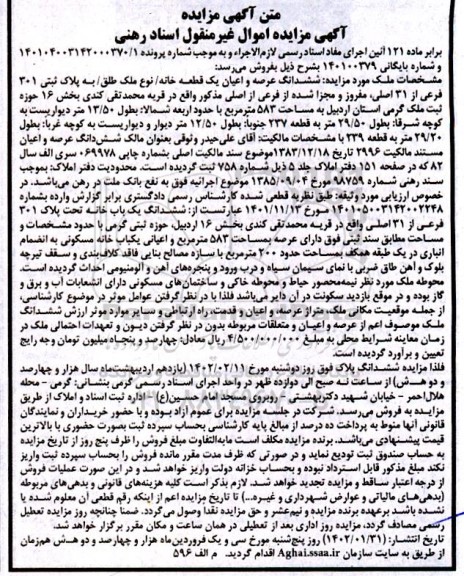 متن آگهی مزایده
آگهی مزایده اموال غیرمنقول اسناد رهنی
برابر ماده ۱۲۱ آئین اجرای مفاد اسناد رسمی لازم‌الاجراء و به موجب شماره پرونده ۱۴۰۱۰۴۰۰۳۱۴۲۰۰۰۳۷۰/۱
و شماره بایگانی ۱۴۰۱۰۰۳۷۹ بشرح ذیل بفروش می‌رسد:
مشخصات ملک مورد مزایده: ششدانگ عرصه و اعیان یک قطعه خانه/ نوع ملک طلق/ به پلاک ثبتی ۳۰۱
فرعی از ۳۱ اصلی، مفروز و مجزا شده از فرعی از اصلی مذکور واقع در قریه محمدتقی کندی بخش ۱۶ حوزه
ثبت ملک گرمی استان اردبیل به مساحت ۵۸۳ مترمربع با حدود اربعه شمالا: بطول ۱۳/۵۰ متر دیواریست به
کوچه شرقا: بطول ۲۹/۵۰ متر به قطعه ۲۳۷ جنوبا: بطول ۱۲/۵۰ متر دیوار و دیواریست به کوچه غربا: بطول
۲۹/۲۰ متر به قطعه ۲۳۹ با مشخصات مالکیت: آقای علی‌حیدر وثوقی بعنوان مالک شش‌دانگ عرصه و اعیان
مستند مالکیت ۲۹۹۶ تاریخ ۱۳۸۳/۱۲/۱۸ موضوع سند مالکیت اصلی بشماره چاپی ۰۶۹۹۷۸ سری الف سال
۸۲ که در صفحه ۱۵۱ دفتر املاک جلد ۵ ذیل شماره ۷۵۸ ثبت گردیده است. محدودیت دفتر املاک: بموجب
سند رهنی شماره ۹۸۷۵۹ مورخ ۱۳۸۵/۰۹/۰۴ موضوع اجرائیه فوق به نفع بانک ملت در رهن می‌باشد. در
خصوص ارزیابی مورد وثیقه: طبق نظریه قطعی شده کارشناس رسمی دادگستری برابر گزارش وارده بشماره
۱۴۰۱۰۵۰۰۳۱۴۲۰۰۲۲۴۸ مورخ ۱۴۰۱/۱۱/۱۳ عبارتست از: ششدانگ یک باب خانه تحت پلاک ۳۰۱
فرعی از ۳۱ اصلی واقع در قریه محمدتقی کندی بخش ۱۶ اردبیل، حوزه ثبتی گرمی با حدود مشخصات و
مساحت مطابق سند ثبتی فوق دارای عرصه بمساحت ۵۸۳ مترمربع و اعیانی یکباب خانه مسکونی به انضمام
انباری در یک طبقه همکف بمساحت حدود ۲۰۰ مترمربع با سازه مصالح بنایی فاقد کلاف‌بندی و سقف تیرچه
بلوک و آهن طاق ضربی با نمای سیمان سیاه و درب ورود و پنجره‌های آهن و آلومنیومی احداث گردیده است.
محوطه ملک مورد نظر نیمه‌محصور حیاط و محوطه خاکی و ساختمان‌های مسکونی دارای انشعابات آب و برق و
گاز بوده و در موقع بازدید سکونت در آن دایر می‌باشد فلذا با در نظر گرفتن عوامل موثر در موضوع کارشناسی،
از جمله موقعیت مکانی ملک، متراژ عرصه، و اعیان و قدمت، راه ارتباطی و سایر موارد موثر ارزش ششدانگ
ملک موصوف اعم از عرصه و اعیان و متعلقات مربوطه بدون در نظر گرفتن دیون و تعهدات احتمالی ملک در
زمان معاینه شرایط محلی به مبلغ ۴/۵۰۰/۰۰۰/۰۰۰ ریال معادل: چهارصد و پنجاه میلیون تومان وجه رایج
تعیین و برآورد گردیده است.
فلذا مزایده ششدانگ پلاک فوق روز دوشنبه مورخ ۱۴۰۲/۰۲/۱۱ (یازدهم اردیبهشت‌ماه سال هزار و چهارصد
و دو هـ ش) از ساعت نه صبح الی دوازده ظهر در واحد اجرای اسناد رسمی گرمی بنشانی: گرمی - محله
هلال‌احمر - خیابان شهید دکتر بهشتی - روبروی مسجد امام حسین(ع) - اداره ثبت اسناد و املاک از طریق
مزایده به فروش می‌رسد. شرکت در جلسه مزایده برای عموم آزاد بوده و با حضور خریداران و نمایندگان
قانونی آنها منوط به پرداخت ده درصد از مبالغ پایه کارشناسی بحساب سپرده ثبت بصورت حضوری با بالاترین
قیمت پیشنهادی می‌باشد. برنده مزایده مکلف است مابه‌التفاوت مبلغ فروش را ظرف پنج روز از تاریخ مزایده
به حساب صندوق ثبت تودیع نماید و در صورتی که ظرف مدت مقرر مانده فروش را بحساب سپرده ثبت واریز
نکند مبلغ مذکور قابل استرداد نبوده و بحساب خزانه دولت واریز خواهد شد و در این صورت عملیات فروش
از درجه اعتبار ساقط و مزایده تجدید خواهد شد. لازم بذکر است کلیه هزینه‌های قانونی و بدهی‌های مربوطه
(بدهی‌های مالیاتی و عوارض شهرداری و غیره...) تا تاریخ مزایده اعم از اینکه رقم قطعی آن معلوم شده یا
نشده باشد برعهده برنده مزایده و نیم‌عشر و حق مزایده نقدا وصول می‌گردد. ضمنا چنانچه روز مزایده تعطیل
رسمی مصادف گردد، مزایده روز اداری بعد از تعطیلی در همان ساعت و مکان مقرر برگزار خواهد شد.
تاریخ انتشار: (۱۴۰۲/۰۱/۳۱) روز پنج‌شنبه مورخ سی و یک فروردین‌ماه هزار و چهارصد و دو هـ ش همزمان
از طریق به سایت سازمان Aghai.ssaa.ir اقدام گردید. م الف ۵۹۶